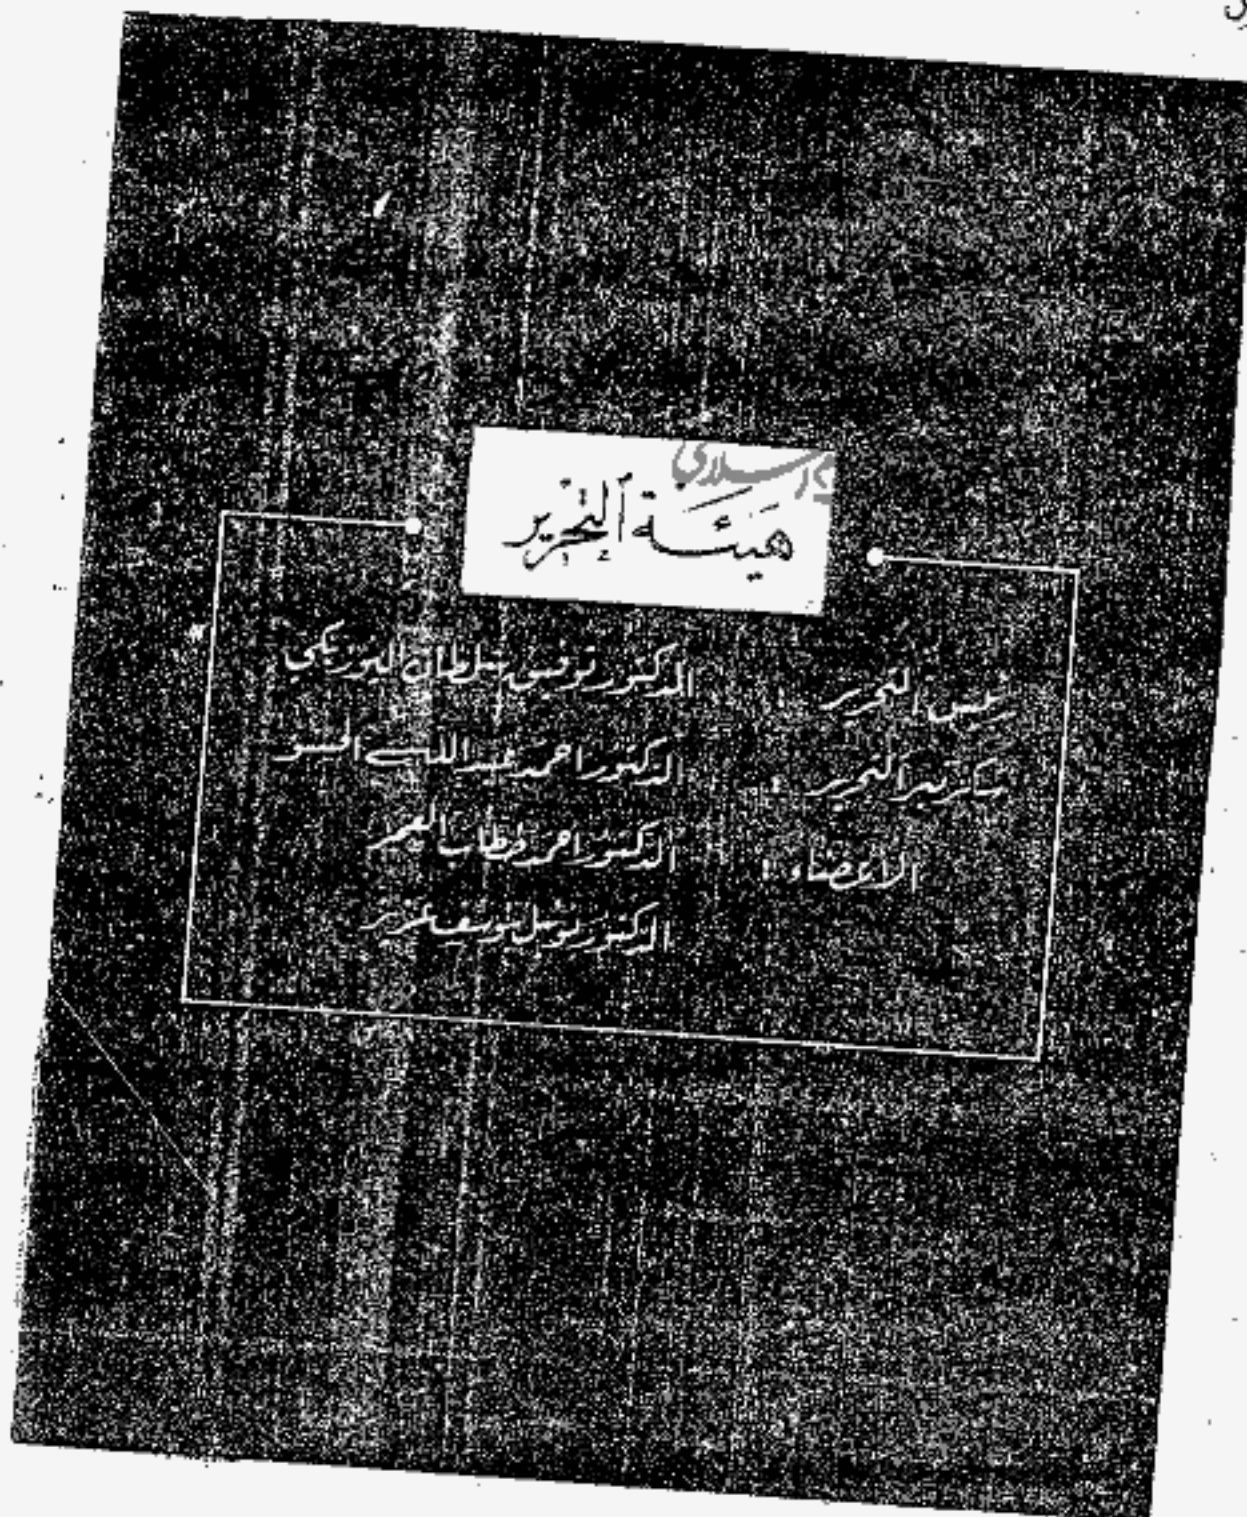 هيئة التحرير
رئيس التحرير الدكتور توفيق سلطان اليوزبكي
سكرتير التحرير : الدكتور احمد عبدالله الحسو
الاعضاء : الدكتور احمد خطاب العمر
الدكتور يوئيل يوسف عزيز